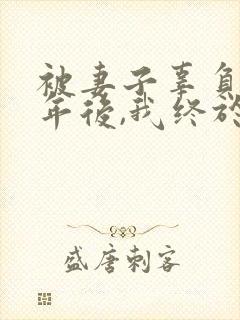 被妻子辜負
年後,我终於
盛唐刺客